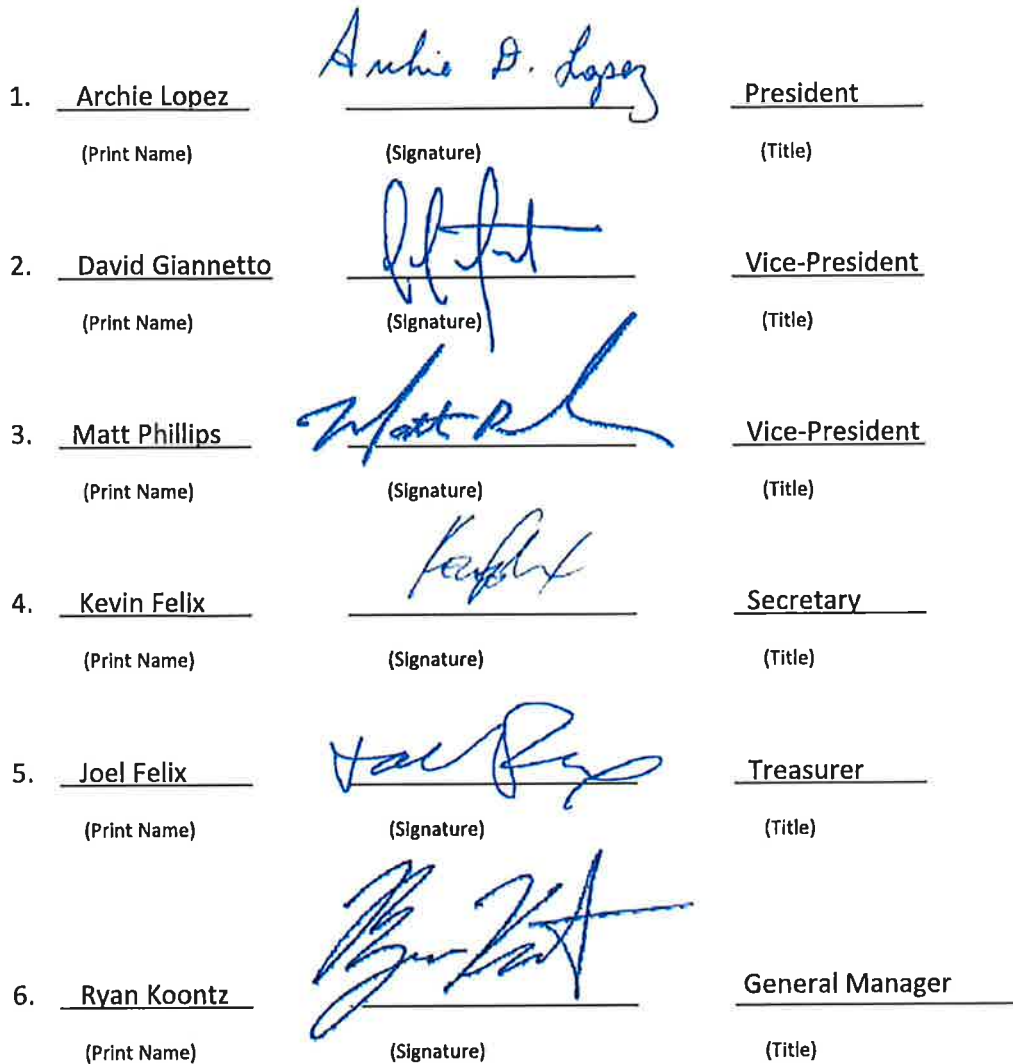 Archie D. Lopez
1. Archie Lopez President
(Print Name) (Signature) (Title)
2. David Giannetto Vice-President
(Print Name) (Signature) (Title)
Matt
3. Matt Phillips Vice-President
(Print Name) (Signature) (Title)
4. Kevin Felix Secretary
(Print Name) (Signature) (Title)
5. Joel Felix Treasurer
(Print Name) (Signature) (Title)
6. Ryan Koontz General Manager
(Print Name) (Signature) (Title)